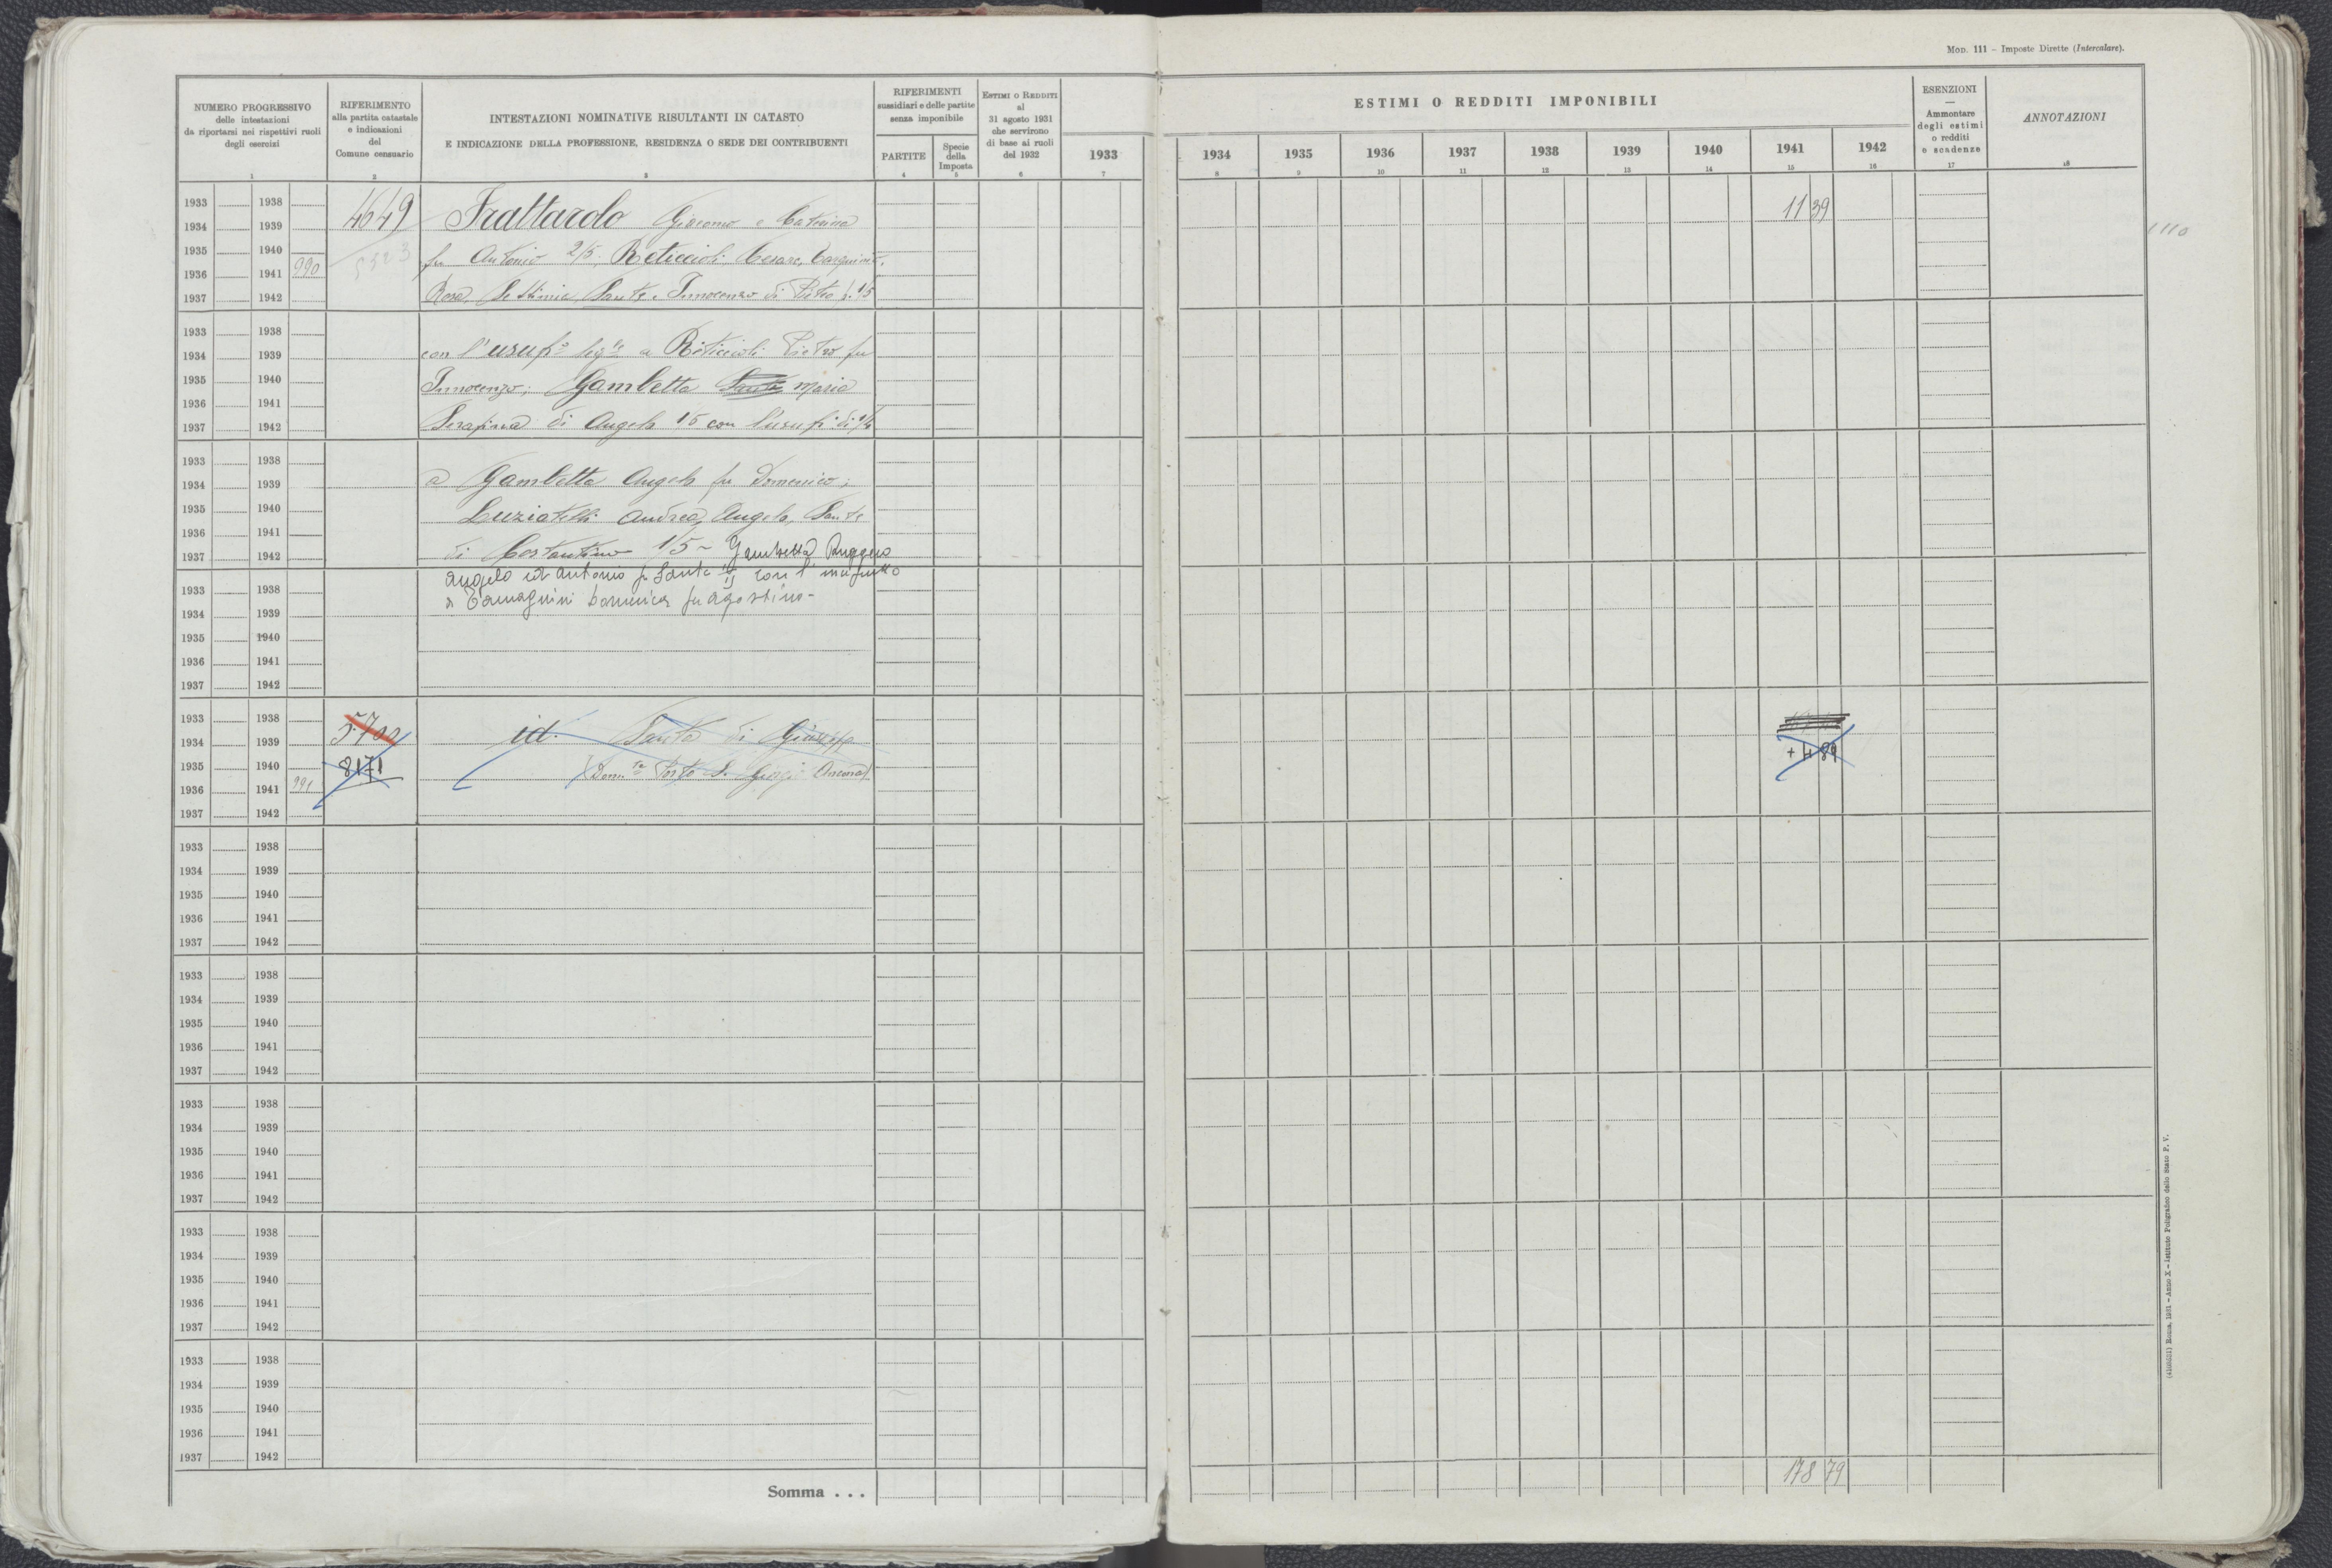 Mod. 111 – Imposte Dirette (Intercalare).
NUMERO PROGRESSIVO
delle intestazioni
da riportarsi nei rispettivi ruoli
degli esercizi
1
RIFERIMENTO
alla partita catastale
e indicazioni
del
Comune censuario
2
INTESTAZIONI NOMINATIVE RISULTANTI IN CATASTO
E INDICAZIONE DELLA PROFESSIONE, RESIDENZA O SEDE DEI CONTRIBUENTI
3
RIFERIMENTI
sussidiari e delle partite
senza imponibile
PARTITE
4
Specie
della
Imposta
5
ESTIMI O REDDITI
al
31 agosto 1931
che servirono
di base ai ruoli
del 1932
6
1933
7
ESTIMI O REDDITI IMPONIBILI
1934 1935 1936 1937 1938 1939 1940 1941 1942
8 9 10 11 12 13 14 15 16
ESENZIONI
—
Ammontare
degli estimi
o redditi
e scadenze
17
ANNOTAZIONI
18
1933 1938
1934 1939
1935 1940
1936 1941 990
1937 1942
4649
5523
Frattarolo Giacomo e Caterina
fu Antonio 2/5; Reticcioli Cesare,
Rosa, Settimia, Sante e Innocenzo di Pietro 1/5
11 39
1110
1933 1938
1934 1939
1935 1940
1936 1941
1937 1942
con l'usufo a Reticcioli Pietro fu
Innocenzo; Gambetta Maria
Serafina di Angelo 1/5 con l'usufo di
1933 1938
1934 1939
1935 1940
1936 1941
1937 1942
a Gambetta Angelo fu Domenico;
Luziatelli Andrea, Angelo, Sante
di Costantino 1/5 – Gambetta Ruggero
1933 1938
1934 1939
1935 1940
1936 1941
1937 1942
Angelo ed Antonio fu Sante con l'usufrutto
a Tamagnini Domenica fu Agostino –
1933 1938
1934 1939
1935 1940
1936 1941 991
1937 1942
5700
8171
id. Sante di Giuseppe
(Dom.to Porto S. Giorgio Ancona)
+ 4 89
1933 1938
1934 1939
1935 1940
1936 1941
1937 1942
1933 1938
1934 1939
1935 1940
1936 1941
1937 1942
1933 1938
1934 1939
1935 1940
1936 1941
1937 1942
1933 1938
1934 1939
1935 1940
1936 1941
1937 1942
1933 1938
1934 1939
1935 1940
1936 1941
1937 1942
Somma . . .
178 79
(4106631) Roma, 1931 – Anno X – Istituto Poligrafico dello Stato P. V.